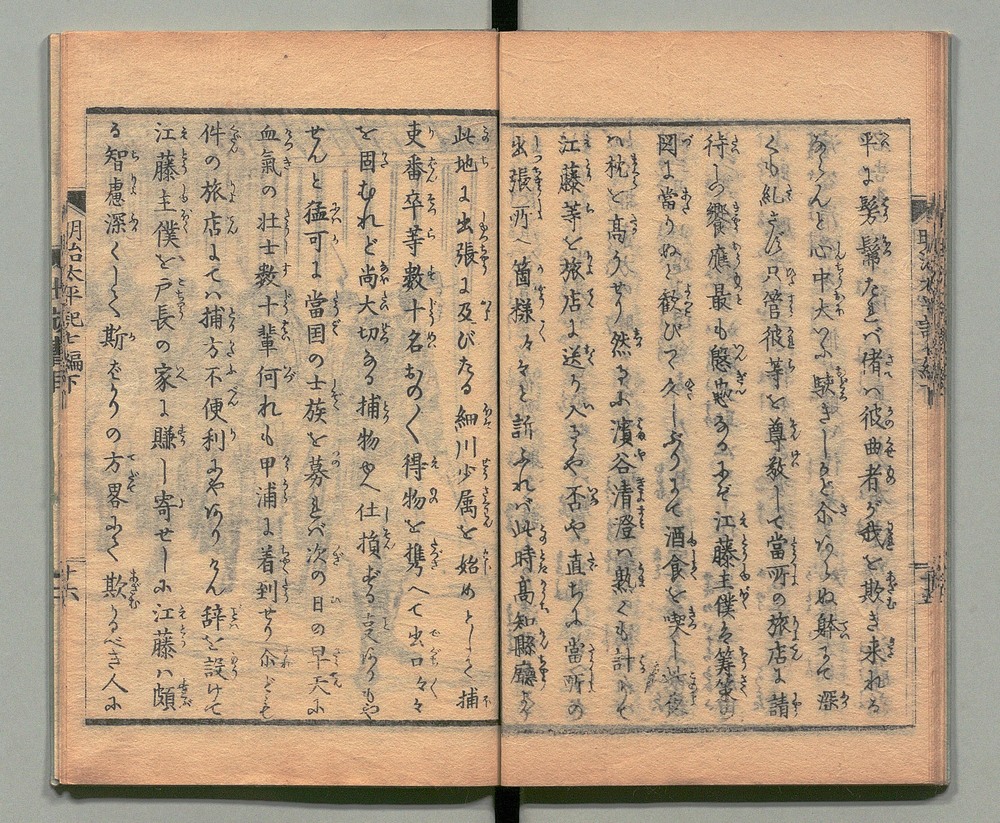 平に髣髴たれバ偖ハ彼曲者が我を欺き来れる
ならんと心中大いに駭きしかど余あらぬ躰にて深
くも糺さず只管彼等を尊敬して當所の旅店に請
待し饗應最も慇懃なるにぞ江藤主僕ハ
図に當りぬと歓びて久しぶりにて酒食を喫し此夜
ハ枕を高うせり然るに濵谷清澄ハ熟くも計りて
江藤等を旅店に送り入るや否や直ちに當所の
出張所へ箇様々々と訴ふれバ此時髙知縣廳より
此地に出張に及びたる細川少属を始めとして捕
吏番卒等数十名おの〳〵得物を携へて出口々々
を固むれど尚大切なる捕物ゆゑ仕損ずる事ありもや
せんと猛可に當国の士族を募れバ次の日の早天に
血氣の壮士数十輩何れも甲浦に着到せり尓ども
件の旅店にてハ捕方不便利にやありけん辞を設けて
江藤主僕を戸長の家に賺し寄せしに江藤ハ頗
る智慮深くして斯ばかりの方畧にて欺かるべき人に
明治太平記七編下
十六